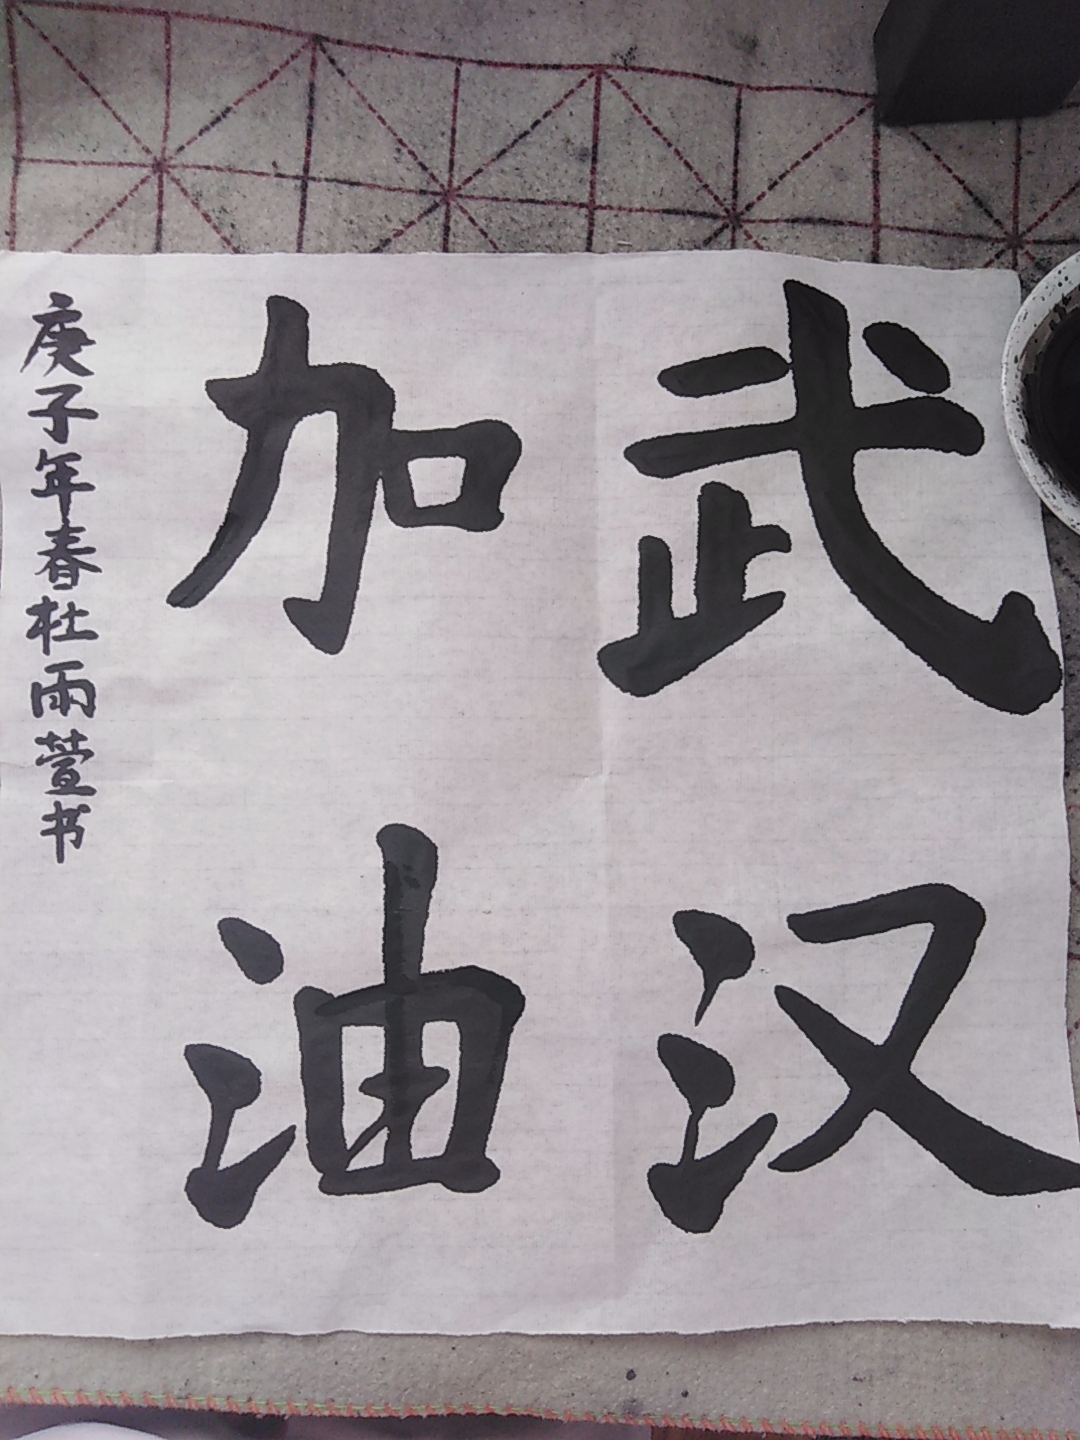 武汉
加油
庚子年春杜雨萱书